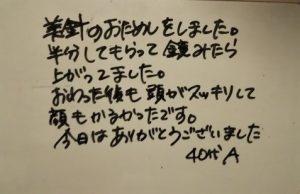 美針のおためしをしました。
半分してもらって鏡みたら
上がってました。
おわった後も頭がスッキリして
顔もかるかったです。
今日はありがとうございました
40代 A